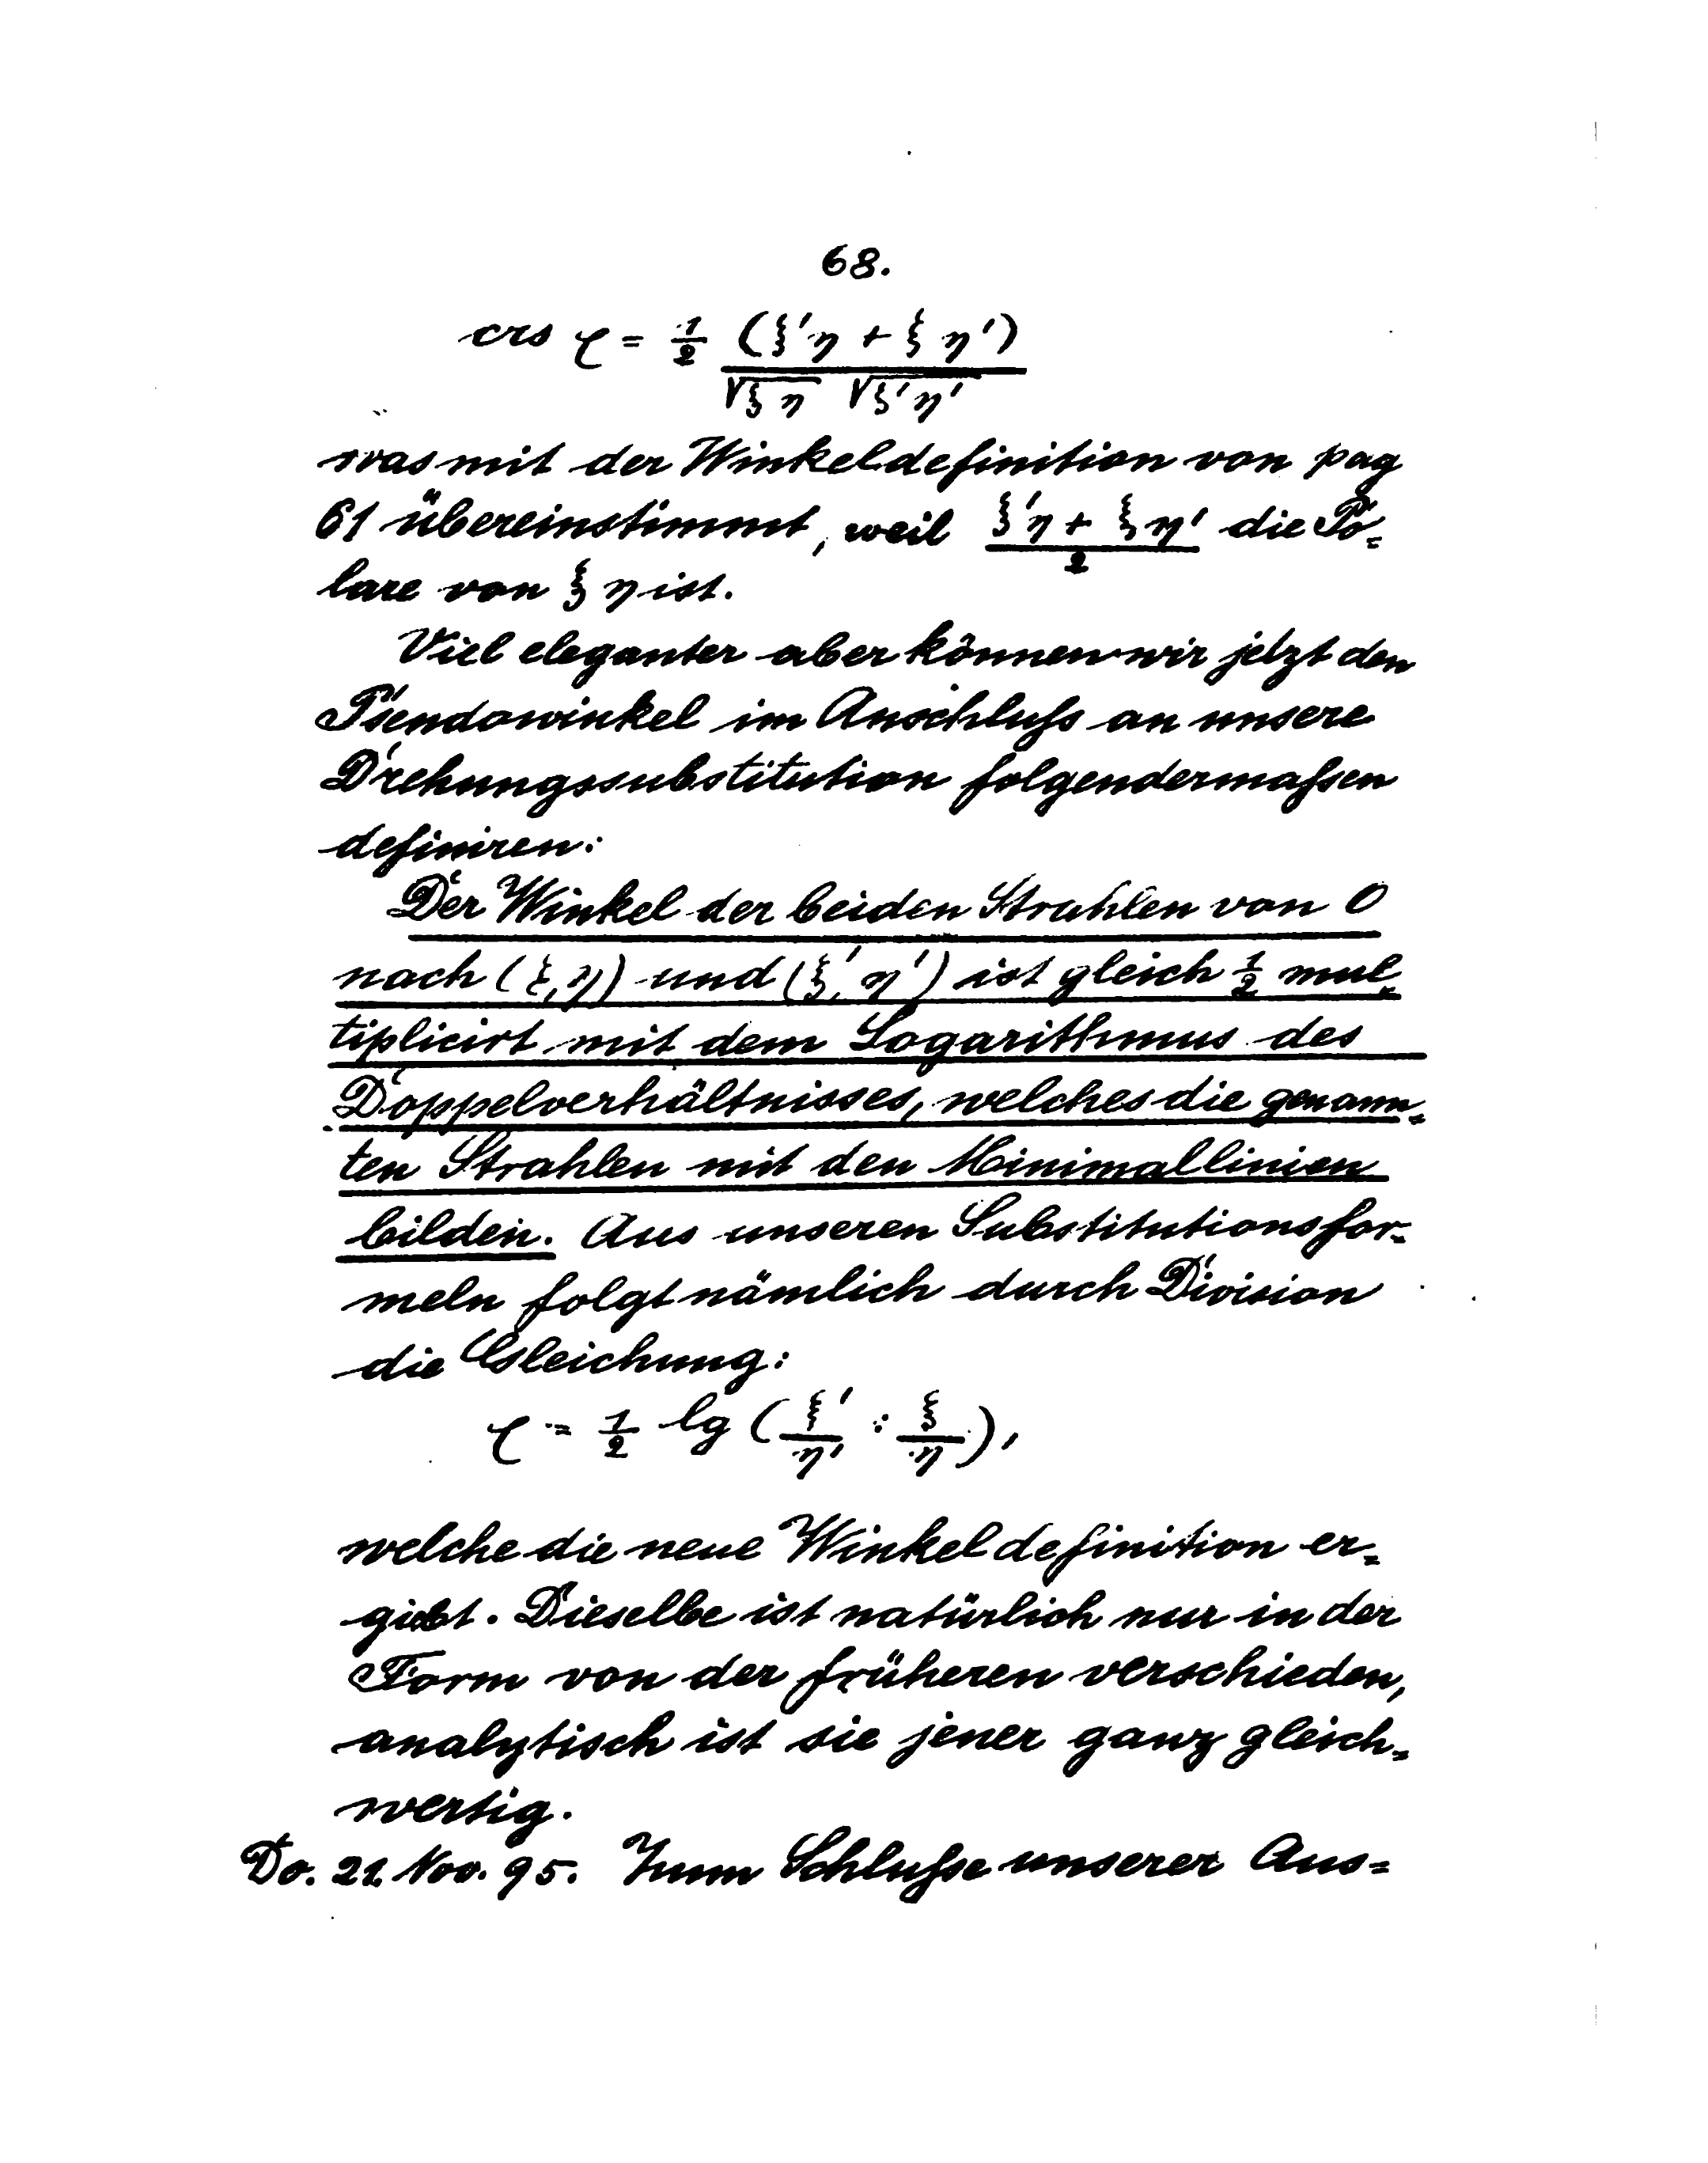 68.
crs τ = 1/2 (ξ'η + ξ η') / √ξη √ξ'η'
was mit der Winkeldefinition von pag
61 übereinstimmt, weil (ξ'η + ξη')/2 die Po=
lare von ξ η ist.
Viel eleganter aber können wir jetzt den
Pseudowinkel im Anschluſs an unsere
Drehungssubstitution folgendermaſsen
definiren:
Der Winkel der beiden Strahlen von O
nach (ξ, η) und (ξ', η') ist gleich 1/2 mul=
tiplicirt mit dem Logarithmus des
Doppelverhältnisses, welches die genann=
ten Strahlen mit den Minimallinien
bilden. Aus unseren Substitutionsfor=
meln folgt nämlich durch Division
die Gleichung:
τ = 1/2 lg (ξ'/η' : ξ/η),
welche die neue Winkeldefinition er=
giebt. Dieselbe ist natürlich nur in der
Form von der früheren verschieden,
analytisch ist sie jener ganz gleich=
wertig.
Do. 21. Nov. 95. Zum Schluſse unserer Aus=